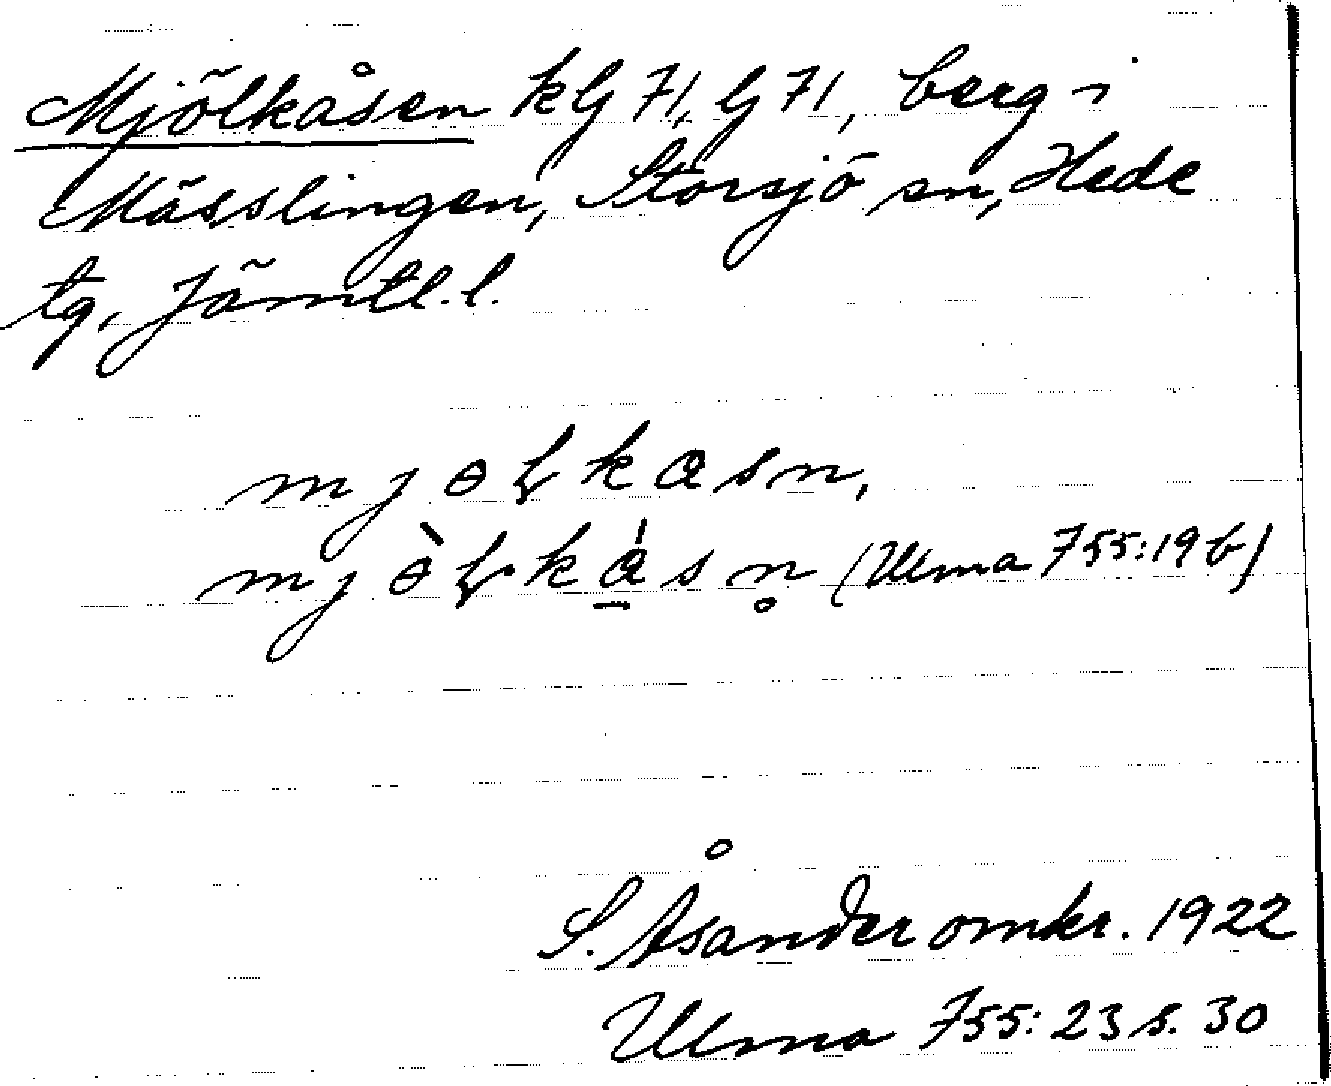 Mjölkåsen kG 71, G 71, berg i
Mässlingen, Storsjö sn, Hede
tg, Jämtl. l.
mjɵɽkasn,
mjɵ̀ɽka̱̍sn̥ (Ulma 755:19 b)
S. Åsander omkr. 1922
Ulma 755: 23 s. 30